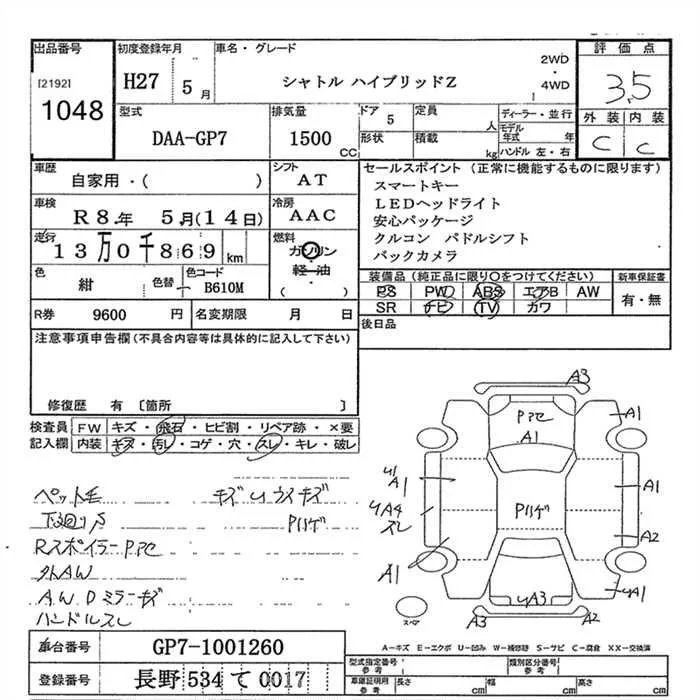 出品番号
[2192]
1048
初度登録年月
H27 5月
車名・グレード
シャトル ハイブリッドZ
2WD
・
4WD
評価点
3.5
外装 内装
C C
型式
DAA-GP7
排気量
1500 CC
ドア 5
形状
定員 人
積載 kg
ディーラー・並行
モデル年式 年
ハンドル 左・右
車歴
自家用・( )
シフト
AT
車検
R8.年 5月(14日)
冷房
AAC
走行
13万0千869 km
燃料
ガソリン
・
軽・油
( )
色
紺
色替
色コード
B610M
R券 9600 円
名変期限 月 日
セールスポイント (正常に機能するものに限ります)
スマートキー
LEDヘッドライト
安心パッケージ
クルコン パドルシフト
バックカメラ
装備品 (純正品に限り○をつけてください)
新車保証書
PS PW ABS エアB AW
SR ナビ TV カワ
有・無
後日品
注意事項申告欄(不具合内容等は具体的に記入して下さい)
修復歴 有 〔箇所 〕
検査員記入欄
FW キズ・飛石・ヒビ割・リペア跡・×要
内装 キズ・汚レ・コゲ・穴・スレ・キレ・破レ
ペット毛 キズUウスキズ
下廻りS Pハゲ
Rスポイラー Pアセ
外AW
A.W.Dミラーキズ
ハンドルスレ
A3
Pアセ
A1
A1
U1
A1
A1
UA4
スレ
Pハゲ
A2
A1
UA3
UA1
A3
A2
スペア
A－キズ E－エクボ U－凹み W－補修跡 S－サビ C－腐食 XX－交換済
車台番号
GP7-1001260
登録番号
長野 534 て 0017
型式指定番号
参考
類別区分番号
参考
車庫証明用
参考
長さ cm
幅 cm
高さ cm